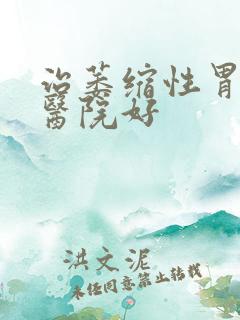 治萎缩性胃
醫院好
洪文泥
未经同意禁止转载